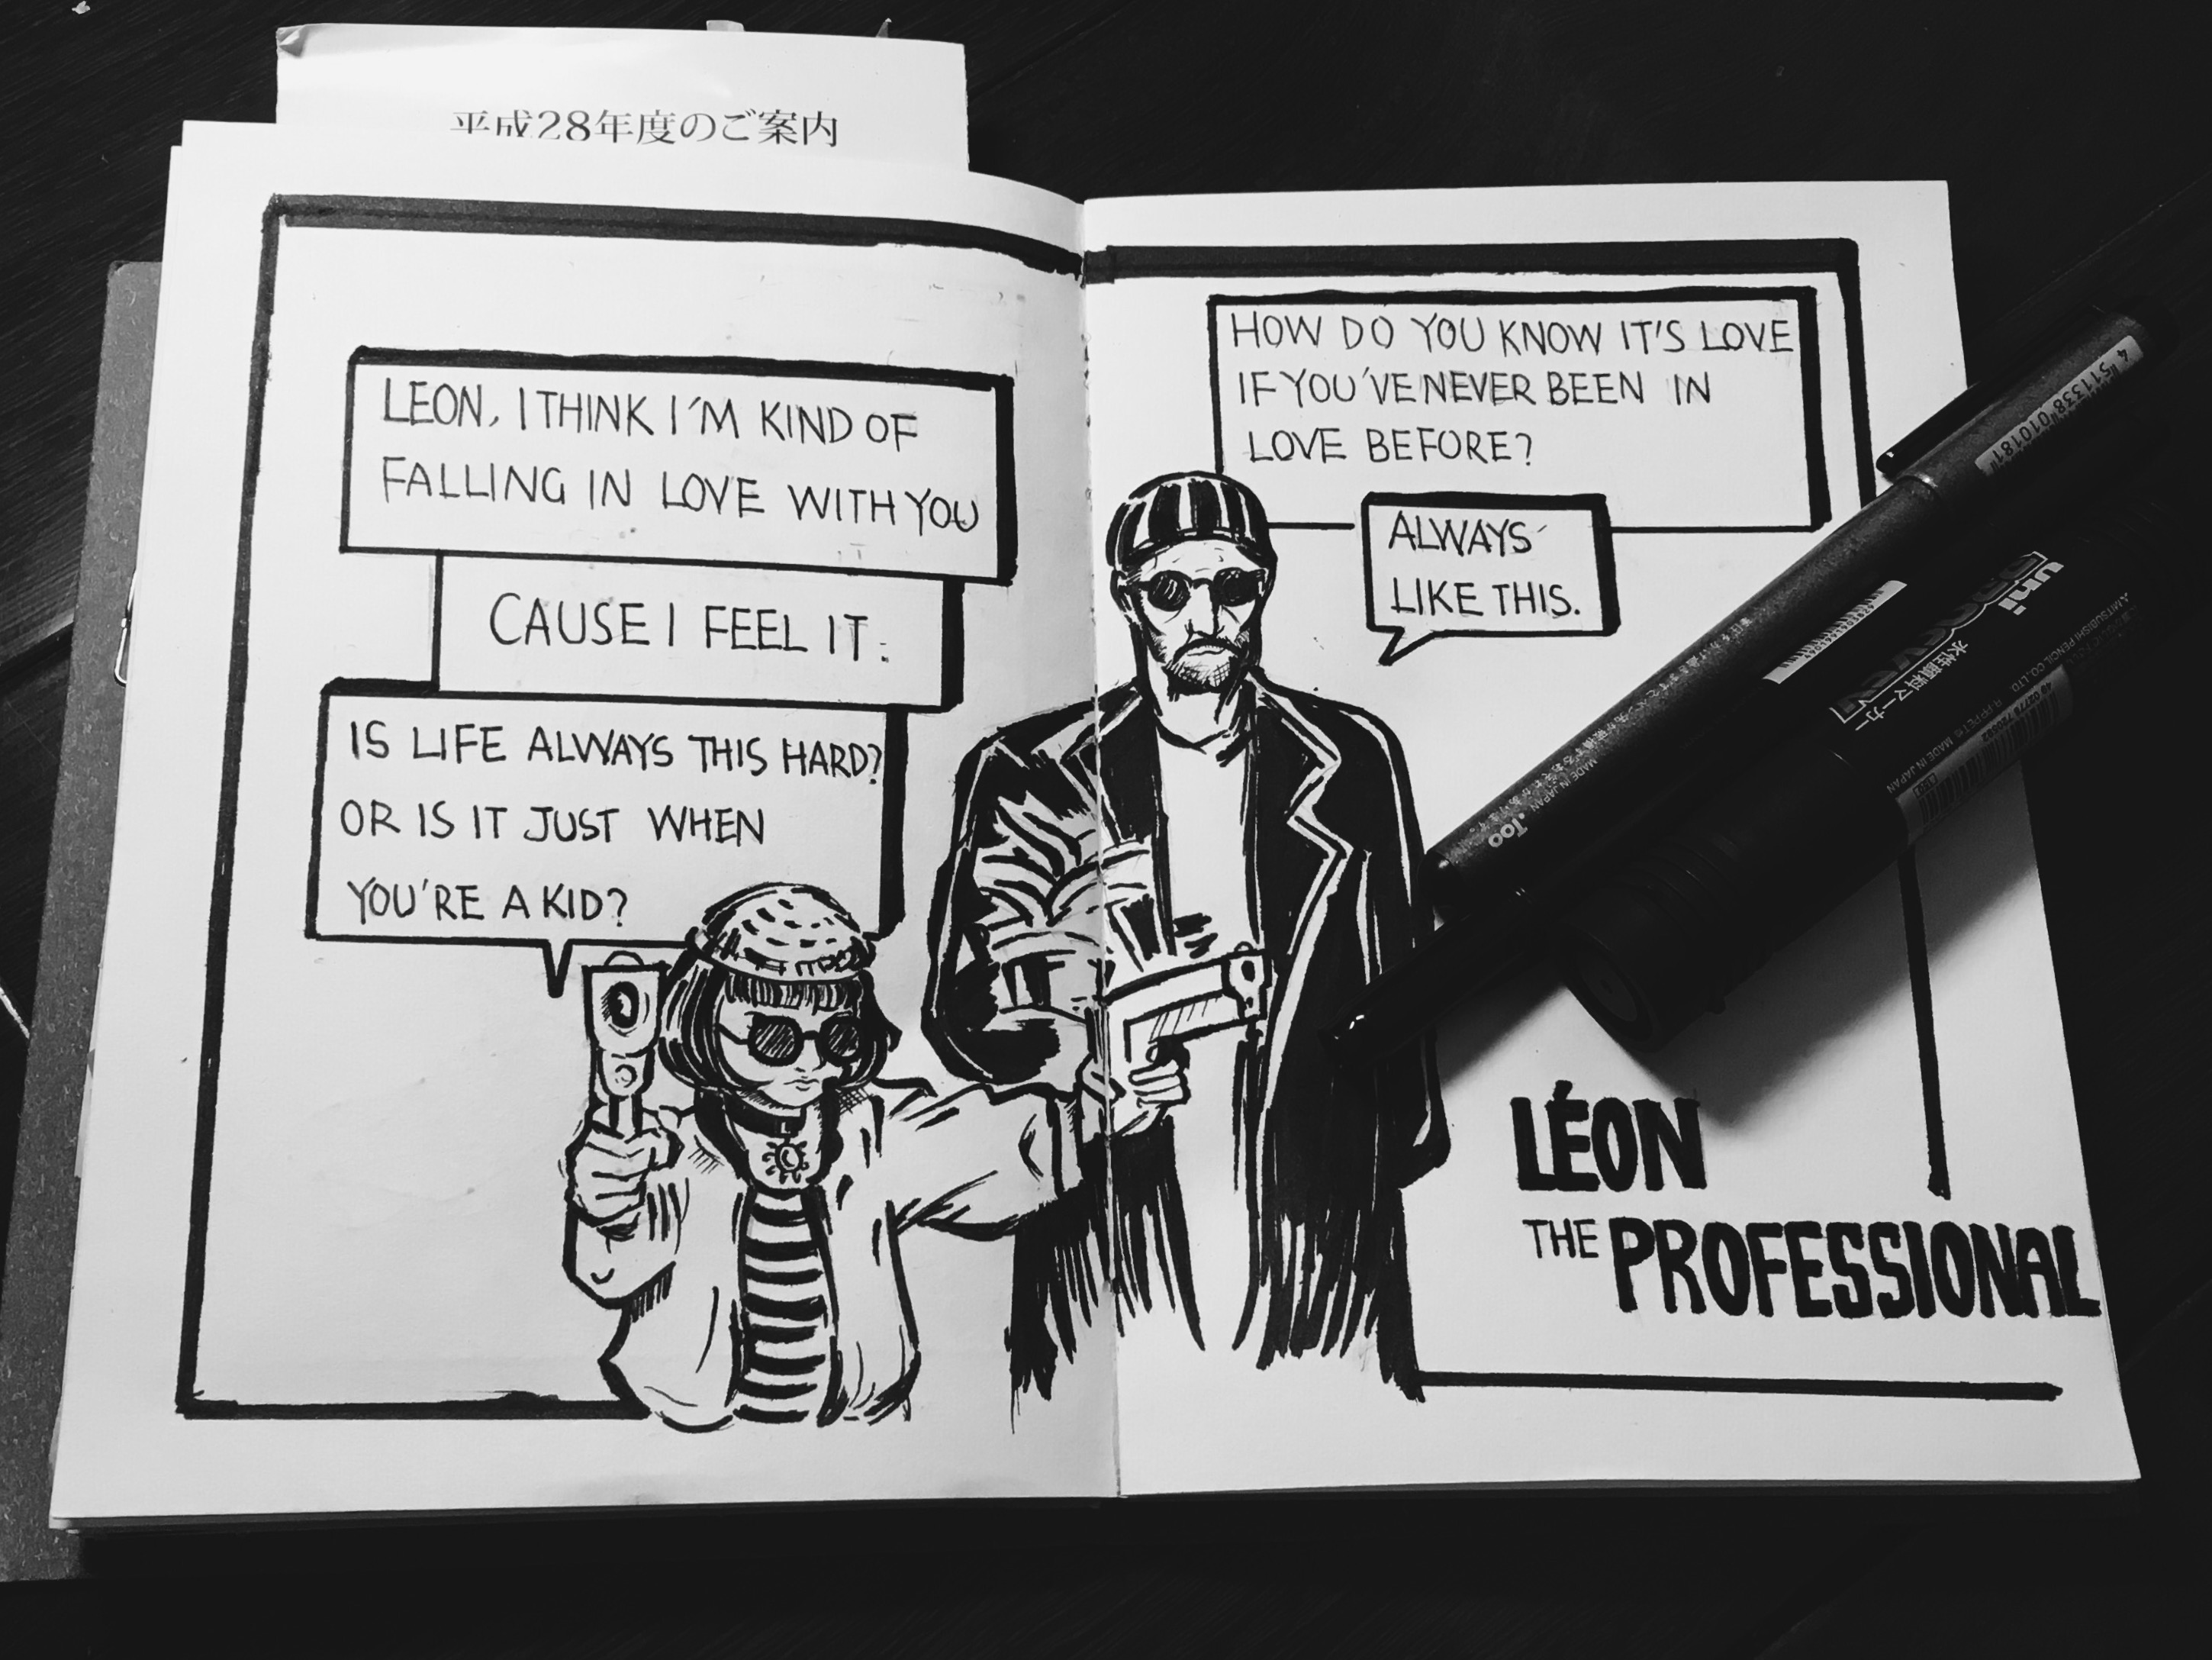 平成28年度のご案内
LEON, I THINK I'M KIND OF
FALLING IN LOVE WITH YOU
CAUSE I FEEL IT.
IS LIFE ALWAYS THIS HARD?
OR IS IT JUST WHEN
YOU'RE A KID?
HOW DO YOU KNOW IT'S LOVE
IF YOU'VE NEVER BEEN IN
LOVE BEFORE?
ALWAYS
LIKE THIS.
LÉON
THE PROFESSIONAL
4 511338 010181
.Too
MADE IN JAPAN
uni
水性顔料マーカー
MITSUBISHI PENCIL CO., LTD
MADE IN JAPAN